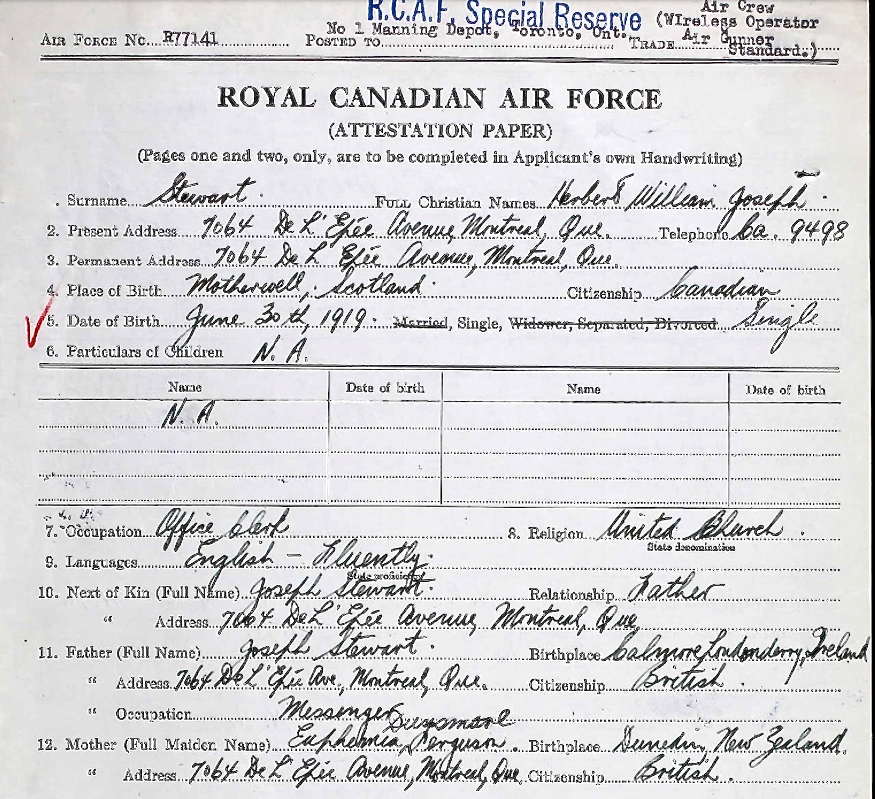 R.C.A.F. Special Reserve
Air Crew
(Wireless Operator
Air Gunner
Standard.)
No 1 Manning Depot, Toronto, Ont.
AIR FORCE NO. R77141 POSTED TO TRADE
ROYAL CANADIAN AIR FORCE
(ATTESTATION PAPER)
(Pages one and two, only, are to be completed in Applicant's own Handwriting)
. Surname Stewart. FULL Christian Names Herbert William Joseph.
2. Present Address 7064 De L'Epée Avenue, Montreal, Que. Telephone Ca. 9498
3. Permanent Address 7064 De L Epée Avenue, Montreal, Que.
4. Place of Birth Motherwell, Scotland. Citizenship Canadian
5. Date of Birth June 30th, 1919. Married, Single, Widower, Separated, Divorced Single
6. Particulars of Children N. A.
Name Date of birth Name Date of birth
N. A.
7. Occupation Office Clerk 8. Religion United Church.
State denomination
9. Languages English - Fluently.
State proficiency
10. Next of Kin (Full Name) Joseph Stewart. Relationship Father
" Address 7064 De L'Epée Avenue, Montreal, Que.
11. Father (Full Name) Joseph Stewart. Birthplace Calmore, Londonderry, Ireland
" Address 7064 De L'Epée Ave., Montreal, Que. Citizenship British.
" Occupation Messenger
12. Mother (Full Maiden Name) Euphemia Ferguson. Birthplace Dunedin, New Zealand.
" Address 7064 De L'Epée Avenue, Montreal, Que. Citizenship British.